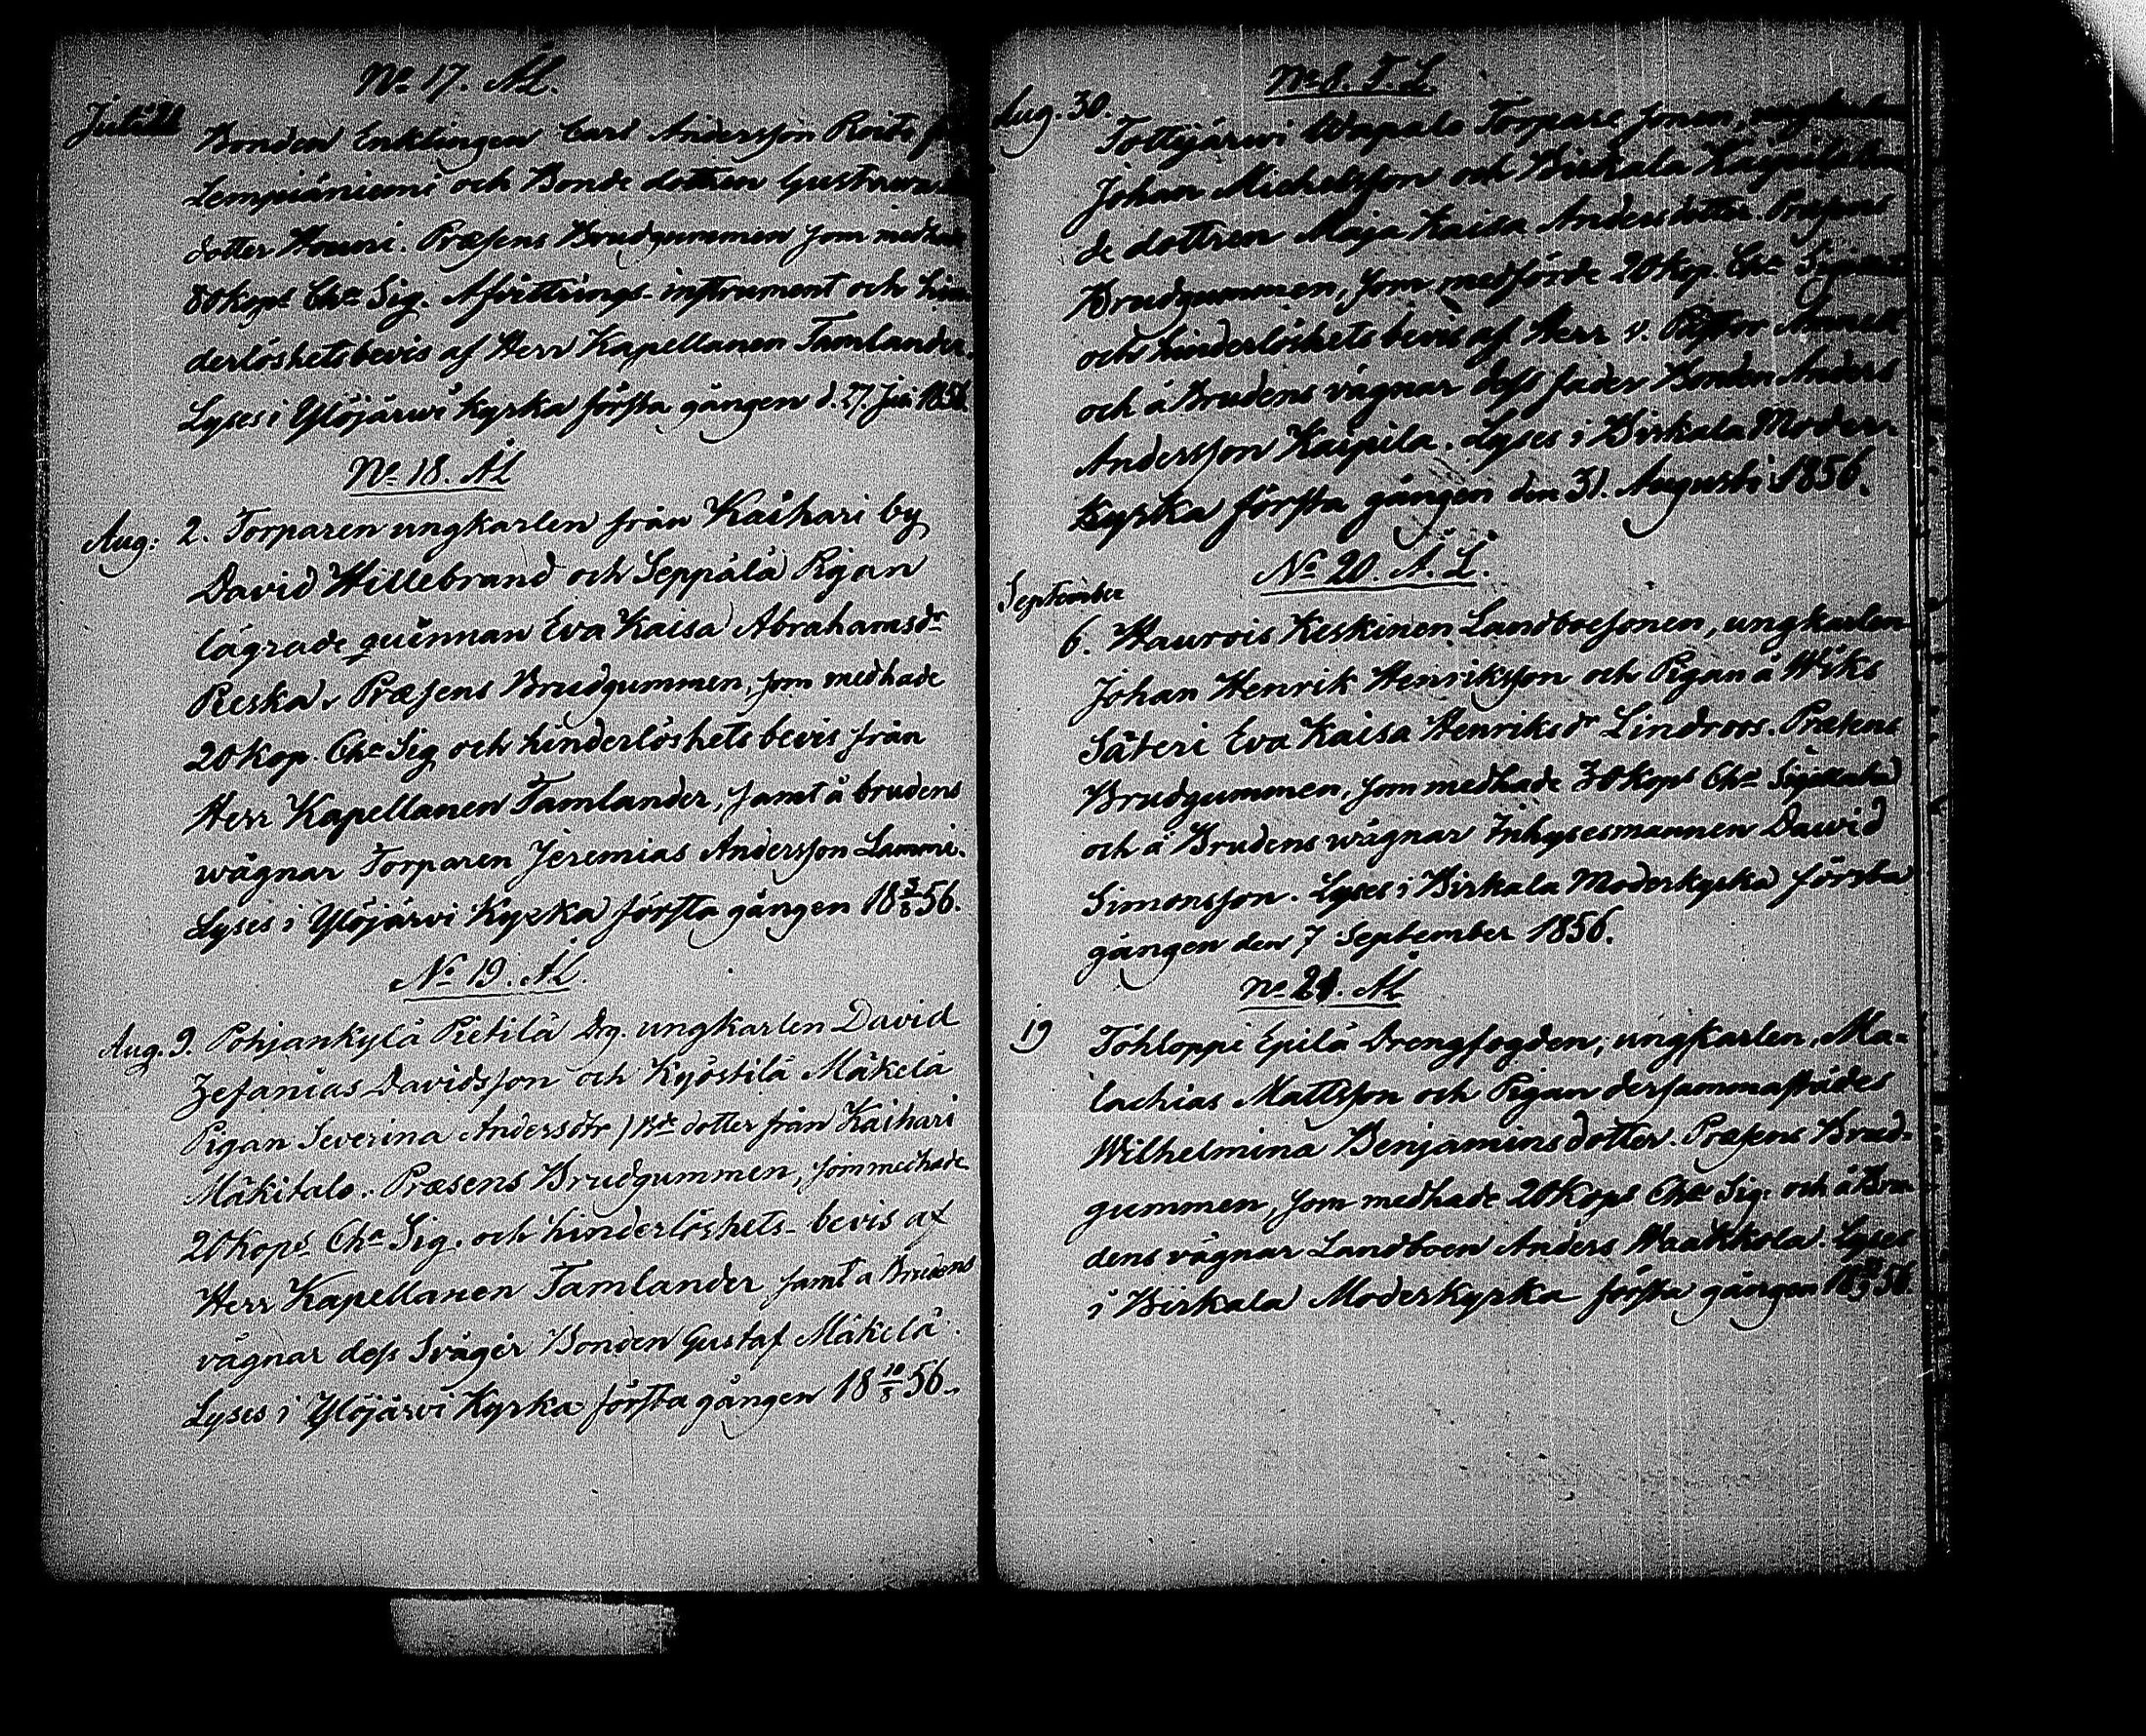 No 17. AL.
Juli
Bonden Enklingen Carl Andersson Roito
Lempiäniemi och Bonde dottren Gustava
dotter Præsens Brudgummen som medhade
80 kops Cha Sig. Afvittrings-instrument och hin-
derlöshetsbevis af Herr Kapellanen Tamlander.
Lyses i Ylöjärvi Kyrka första gången d. 27. Juli 1856.
No 18. AL
Aug: 2. Torparen ungkarlen från Kaihari by
David Hillebrand och Seppälä Pigan
lägrade quinnan Eva Kaisa Abrahamsdr
Reska. Præsens Brudgummen, som medhade
20 Kop. Cha Sig och hinderlöshets bevis från
Herr Kapellanen Tamlander, samt å brudens
wägnar Torparen Jeremias Andersson Lammi.
Lyses i Ylöjärvi Kyrka första gången 18 3/8 56.
No 19. AL.
Aug. 9. Pohjankylä Pietilä Dg. ungkarlen David
Zefanias Davidsson och Kyöstilä Mäkelä
Pigan Severina Andersdtr / Bde dotter från Kaihari
Mäkitalo. Præsens Brudgummen, som medhade
20 Kops Cha Sig. och hinderlöshets-bevis af
Herr Kapellanen Tamlander samt a Brudens
vägnar dess Svåger Bonden Gustaf Mäkelä.
Lyses i Ylöjärvi Kyrka första gången 18 10/8 56.
No 8. T. L.
Aug. 30.
Tottijärvi Wapalo Torpare sonen, ungkarlen
Johan Michelsson och Birkala Kaipila Bon-
de dottren Maja Kaisa Anders dotter. Præsens
Brudgummen, som medförde 20 Kop. Cha Sigillata
och hinderlöshets bevis af Herr v. Pastor
och å Brudens vägnar dess fader Bonden Anders
Andersson Kaipila. Lyses i Birkala Moder-
Kyrka första gången den 31. Augusti 1856.
No 20. A. L.
September
6. Haurois Keskinen Landboesonen, ungkarlen
Johan Henrik Henriksson och Pigan å Wiks
Säteri Eva Kaisa Henriksdr Lindroos. Præsens
Brudgummen, som medhade 30 Kops Cha Sigillata
och å Brudens wägnar Inhysesmannen David
Simonsson. Lyses i Birkala Moderkyrka första
gången den 7 September 1856.
no 21. AL
19 Tohloppi Epilä Drengfogden, ungkarlen, Ma-
lachias Mattsson och Pigan dersammastädes
Wilhelmina Benjamins dotter. Præsens Brud-
gummen, som medhade 20 Kops Cha Sig. och å Bru-
dens vägnar Landboen Anders Waakkola. Lyses
i Birkala Moderkyrka första gången